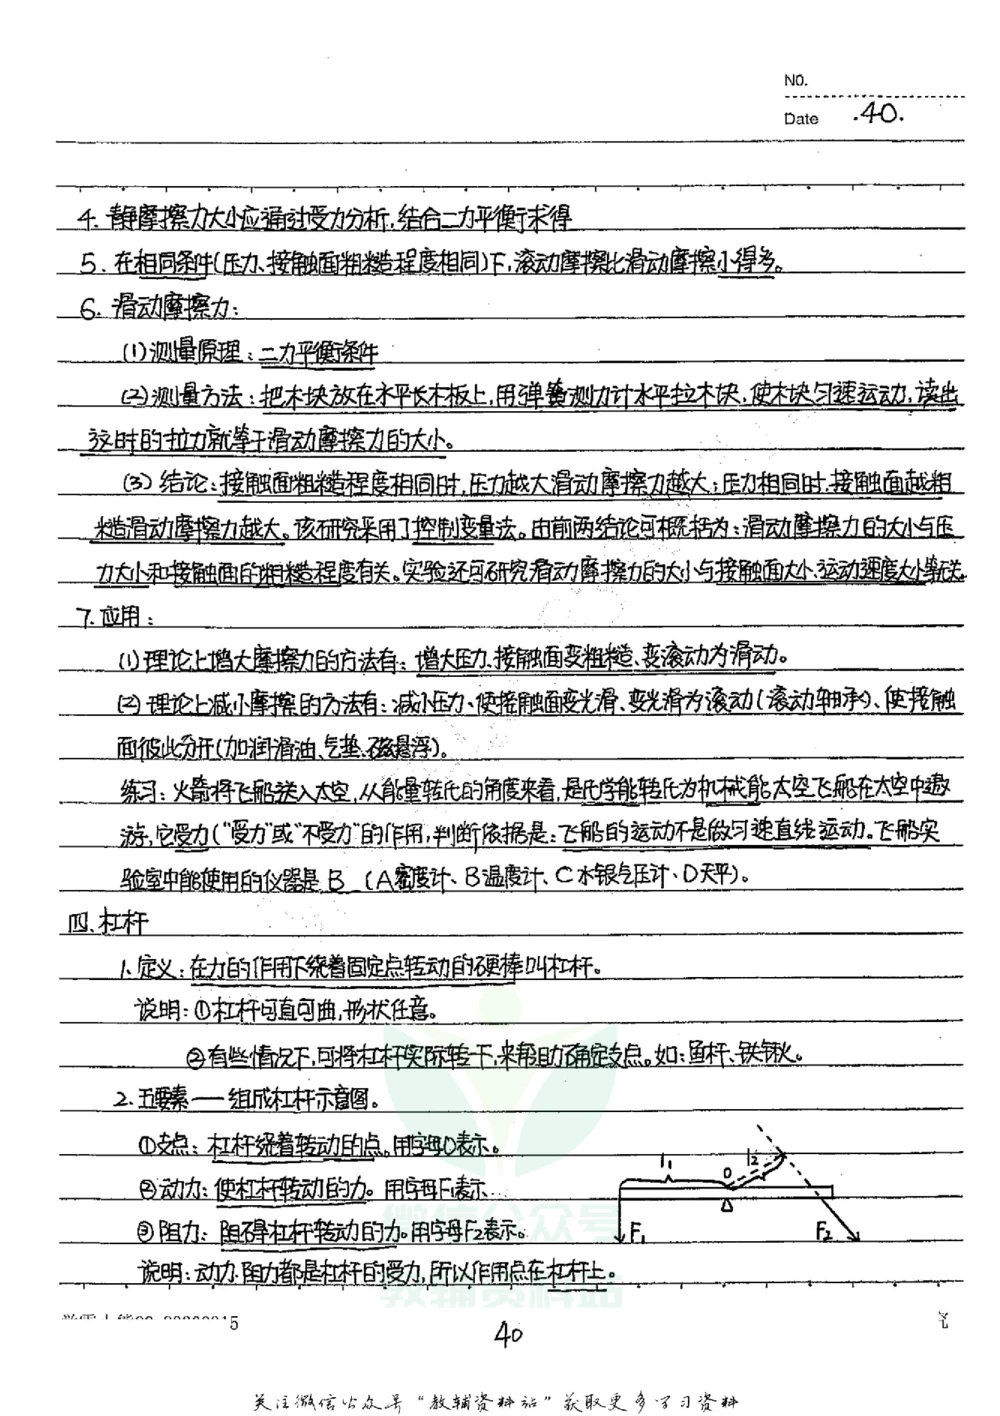 NO.
Date .40.
4. 静摩擦力大小应通过受力分析,结合二力平衡求得
5. 在相同条件(压力、接触面粗糙程度相同)下,滚动摩擦比滑动摩擦小得多。
6. 滑动摩擦力:
(1)测量原理:二力平衡条件
(2)测量方法:把木块放在水平长木板上,用弹簧测力计水平拉木块,使木块匀速运动,读出
这时的拉力就等于滑动摩擦力的大小。
(3)结论:接触面粗糙程度相同时,压力越大滑动摩擦力越大;压力相同时,接触面越粗
糙滑动摩擦力越大。该研究采用了控制变量法。由前两结论可概括为:滑动摩擦力的大小与压
力大小和接触面的粗糙程度有关。实验还可研究滑动摩擦力的大小与接触面大小、运动速度大小等无关。
7. 应用:
(1)理论上增大摩擦力的方法有:增大压力、接触面变粗糙、变滚动为滑动。
(2)理论上减小摩擦的方法有:减小压力、使接触面变光滑、变光滑为滚动(滚动轴承)、使接触
面彼此分开(加润滑油、气垫、磁悬浮)。
练习:火箭将飞船送入太空,从能量转化的角度来看,是化学能转化为机械能太空飞船在太空中遨
游,它受力("受力"或"不受力"的作用,判断依据是:飞船的运动不是做匀速直线运动。飞船实
验室中能使用的仪器是 B (A密度计、B温度计、C水银气压计、D天平)。
四.杠杆
1.定义:在力的作用下绕着固定点转动的硬棒叫杠杆。
说明:①杠杆可直可曲,形状任意。
②有些情况下,可将杠杆实际转一下,来帮助确定支点。如:鱼杆、铁锹。
2.五要素——组成杠杆示意图。
①支点:杠杆绕着转动的点。用字母O表示。
②动力:使杠杆转动的力。用字母F1表示.
③阻力:阻碍杠杆转动的力。用字母F2表示。
l1 O l2
F1 F2
说明:动力.阻力都是杠杆的受力,所以作用点在杠杆上。
40
关注微信公众号"教辅资料站"获取更多学习资料
微信公众号
教辅资料站